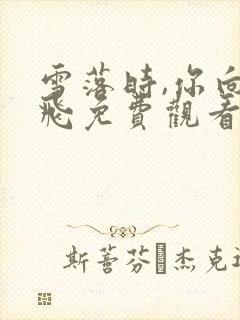 雪落時,你向
飛免費觀看
斯蒈芬·杰克遜